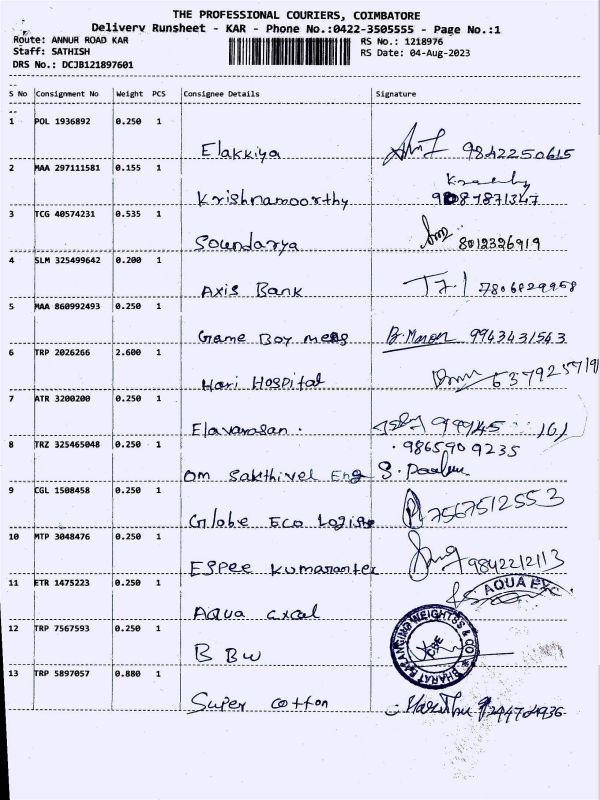 THE PROFESSIONAL COURIERS, COIMBATORE
Delivery Runsheet - KAR - Phone No.:0422-3505555 - Page No.:1
Route: ANNUR ROAD KAR RS No.: 1218976
Staff: SATHISH RS Date: 04-Aug-2023
DRS No.: DCJB121897601
S No Consignment No Weight PCS Consignee Details Signature
1 POL 1936892 0.250 1
Elakkiya 9842250615
2 MAA 297111581 0.155 1
Krishnamoorthy 87871347
3 TCG 40574231 0.535 1
Soundarya 8012326919
4 SLM 325499642 0.200 1
Axis Bank 7806829958
5 MAA 860992493 0.250 1
Game Boy mens 9943431543
6 TRP 2026266 2.600 1
Hari Hospital 637925719
7 ATR 3200200 0.250 1
Elavarasan.
8 TRZ 325465048 0.250 1 9865909235
Om Sakthivel Eng
9 CGL 1508458 0.250 1
Globe Eco Logistic 7567512553
10 MTP 3048476 0.250 1
Espee Kumaranter 9842212113
11 ETR 1475223 0.250 1 AQUA EXC
Aqua excel
12 TRP 7567593 0.250 1 BHARAT BALANCING WEIGHTSS & CO
B BW CBE
13 TRP 5897057 0.880 1
Super cotton